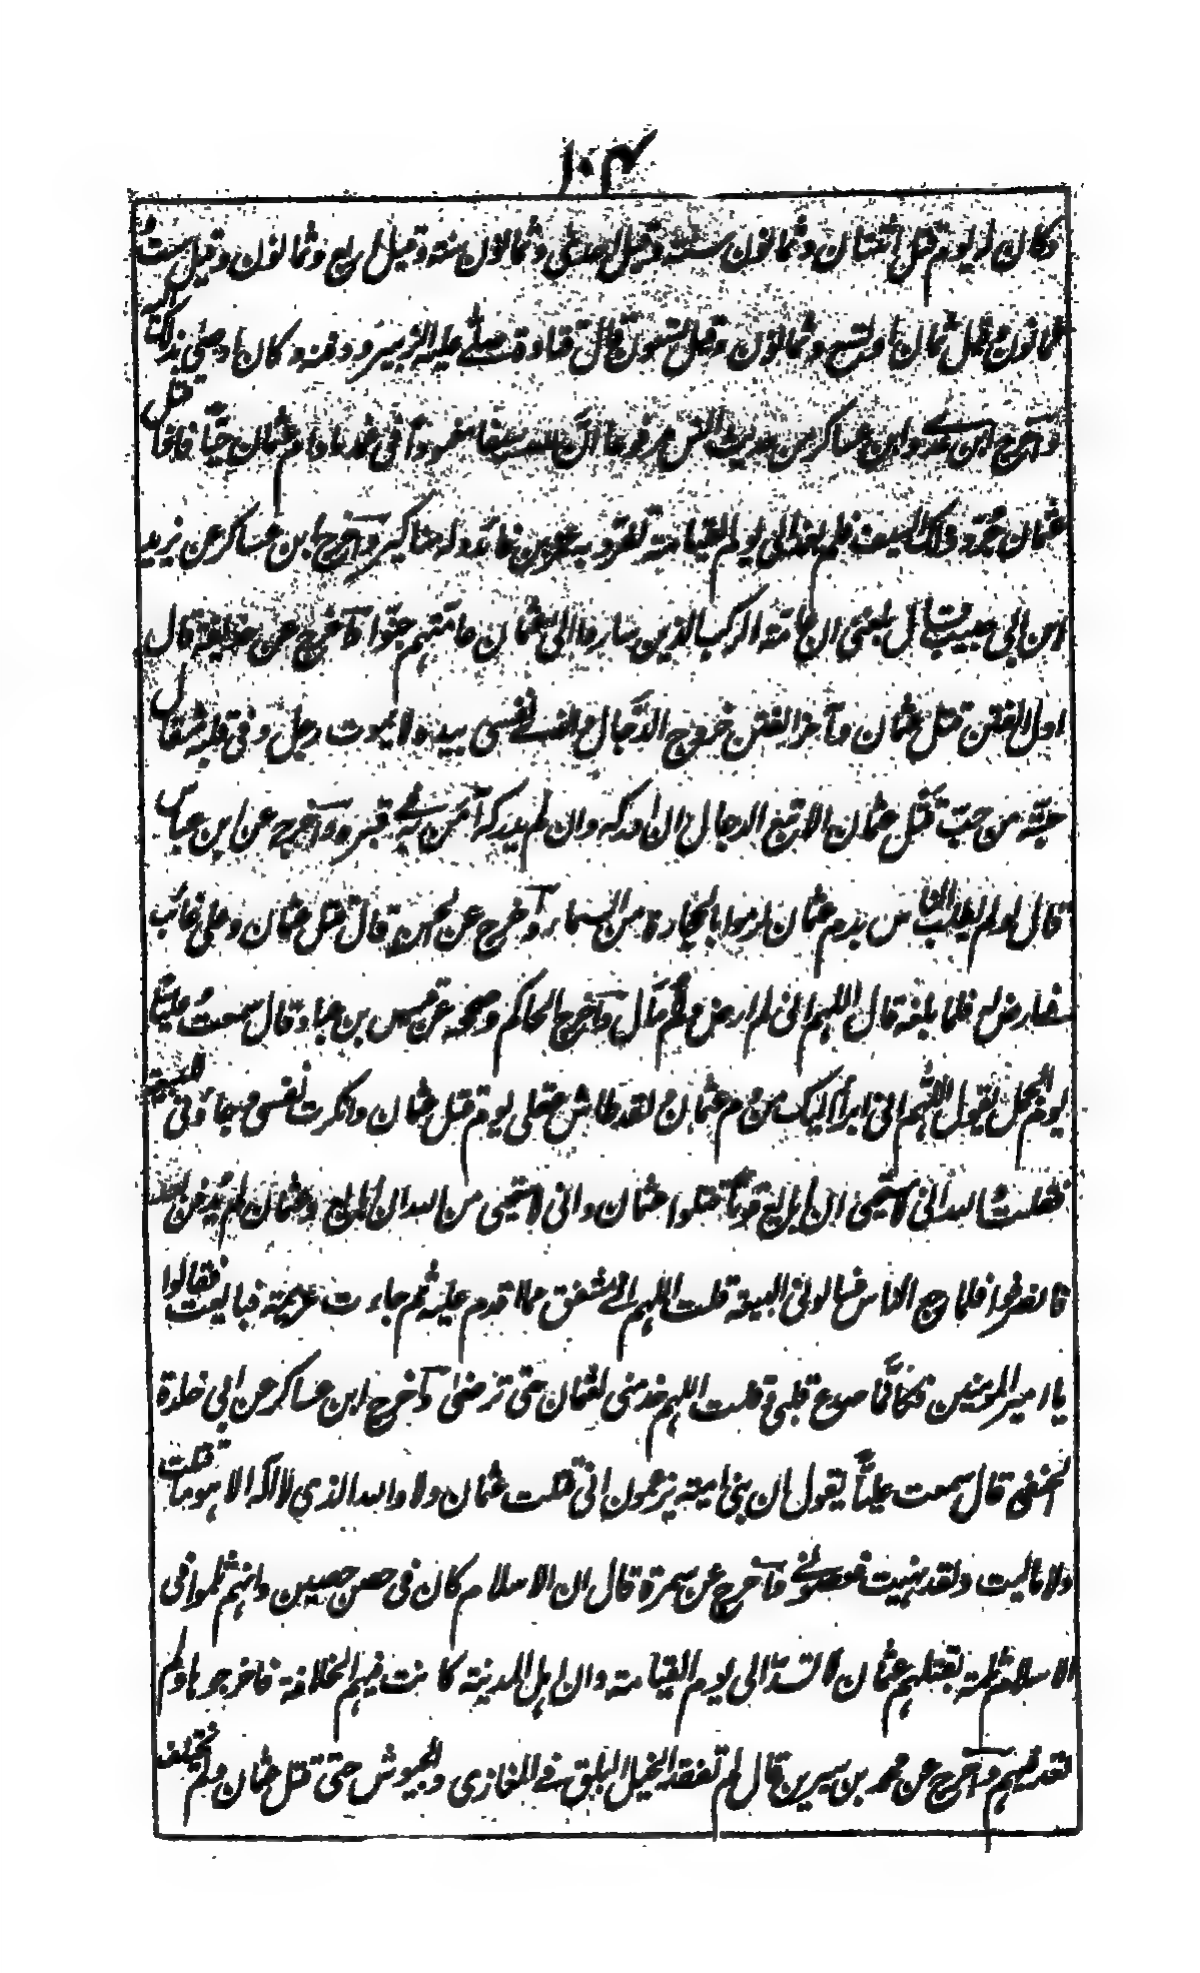 ١٠٣
وكان له يوم قتل اثنتان وثمانون سنة وقيل احدى وثمانون سنة وقيل اربع وثمانون وقيل ست
وثمانون وقيل ثمان او تسع وثمانون وقيل تسعون قال قتادة صلى عليه الزبير ودفنه وكان اوصى بذلك اليه
وآخرج ابن عدي وابن عساكر من حديث انس مرفوعا ان لله سيفا مغمودا في غمده ما دام عثمان حيا فاذا قتل
عثمان جرد ذلك السيف فلم يغمد الى يوم القيامة تفرد به عمرو بن فائد وله مناكير وآخرج ابن عساكر عن يزيد
ابن ابي حبيب قال بلغني ان عامة الركب الذين ساروا الى عثمان عامتهم جنوا وآخرج عن حذيفة قال
اول الفتن قتل عثمان وآخر الفتن خروج الدجال والذي نفسي بيده لا يموت رجل وفي قلبه مثقال
حبة من حب قتل عثمان الا تبع الدجال ان ادركه وان لم يدركه آمن به في قبره وآخرج عن ابن عباس
قال لو لم يطلب الناس بدم عثمان لرموا بالحجارة من السماء وآخرج عن الحسن قال قتل عثمان وعلي غائب
في ارض له فلما بلغه قال اللهم اني لم ارض ولم امال وآخرج الحاكم وصححه عن قيس بن عباد قال سمعت عليا
يوم الجمل يقول اللهم اني ابرأ اليك من دم عثمان ولقد طاش عقلي يوم قتل عثمان وانكرت نفسي وجاؤني للبيعة
فقلت والله اني لاستحيى ان ابايع قوما قتلوا عثمان واني لاستحيى من الله ان ابايع وعثمان لم يدفن بعد
فانصرفوا فلما رجع الناس فسالوني البيعة قلت اللهم اني مشفق مما اقدم عليه ثم جاءت عزيمة فبايعت فقالوا
يا امير المومنين فكانما صدع قلبي وقلت اللهم خذ مني لعثمان حتى ترضى وآخرج ابن عساكر عن ابي خلدة
الحنفي قال سمعت عليا يقول ان بني امية يزعمون اني قتلت عثمان ولا والله الذي لا اله الا هو ما قتلت
ولا ماليت ولقد نهيت فعصوني وآخرج عن سمرة قال ان الاسلام كان في حصن حصين وانهم ثلموا في
الاسلام ثلمة بقتلهم عثمان لا تسد الى يوم القيامة وان اهل المدينة كانت فيهم الخلافة فاخرجوها ولم
تعد فيهم وآخرج عن محمد بن سيرين قال لم تفقد الخيل البلق في المغازي والجيوش حتى قتل عثمان ولم تختلف